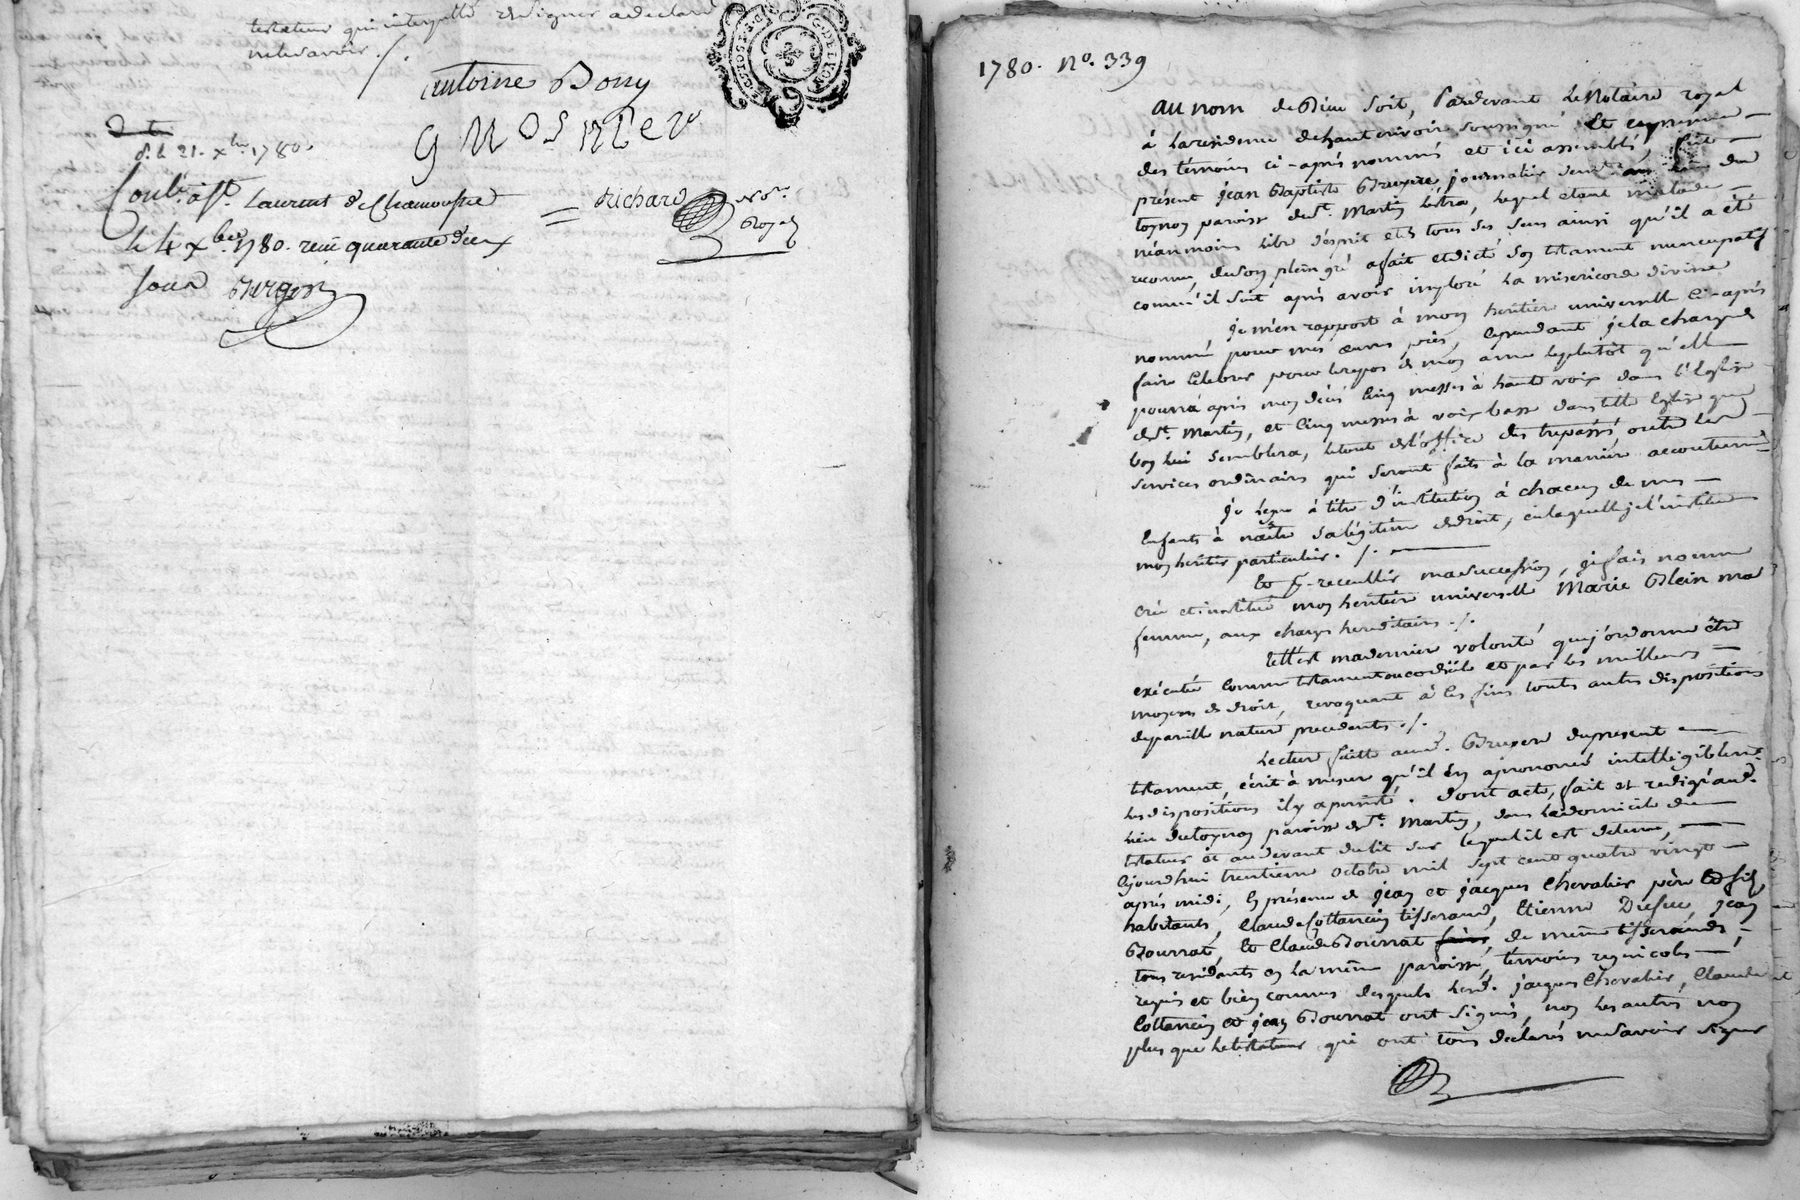 testateur qui interpellé de signer a declaré
ne le savoir ./.
antoine Bony
G MOSNIER
d. le 21. xbre 1780.
Conlé. à St. Laurent de Chamousset
Richard Nore.
Royal
le 4 xbre 1780. reçu quarante deux
sous
1780. No. 339
au nom de Dieu soit, Pardevant Le Notaire royal
à la residence de haute rivoire soussigné Et en presence
des témoins ci-après nommés et ici assemblés, fut
présent jean Baptiste Bruyere journalier du
toynon paroisse de St. Martin lestra, Lequel etant malade
néanmoins libre d'esprit et de tous ses sens ainsi qu'il a été
reconnu, de son plein gré a fait et dicté son testament nuncupatif
comm'il suit après avoir imploré La misericorde divine
je m'en rapporte à mon heritiere universelle Ci-après
nommée pour mes œuvres pies, Cependant je la charge de
faire Celebrer pour le repos de mon ame le plutôt qu'elle
pourra après mon décés Cinq messes à haute voix dans l'Eglise
de St. Martin, et Cinq messes à voix basse dans telle Eglise que
bon lui semblera, le tout de l'office des trepassés outre Les
services ordinaires qui seront faits à la maniere accoutumée
je Legue à titre d'institution à chacun de mes
Enfants à naitre sa légitime de droit, en laquelle je l'institue
mon heritier particulier ./.
Et pr. recueillir ma succession, je fais nomme
crée et institue mon heritiere universelle Marie Blein ma
femme, aux charges hereditaires ./.
telle est ma derniere volonté que j'ordonne être
exécutée Comme testament ou codicile et par les meilleurs
moyens de droit, revoquant à Ces fins toutes autres dispositions
de pareille nature precedentes ./.
Lecture faitte aud. Bruyere du present
testament, écrit à mesure qu'il En a prononcé intelligiblemt.
les dispositions il y a persisté. dont acte, fait et redigé aud.
lieu du toynon paroisse de St. Martin, dans Le domicile du
testateur et au devant du lit sur lequel il est detenu,
ajourd'hui trentieme octobre mil sept cent quatre vingt
après midi, En présence de jean et jacques Chevalier père Et fils
habitants, Claude Cottancin tisserand, Etienne jean
Bournat, Et Claude Bournat de même tisserands,
tous residants en la même paroisse, témoins regnicoles
requis et bien connus desquels lesd. jacques Chevalier, Claude
Cottancin et jean Bournat ont signé, non les autres non
plus que le testateur qui ont tous déclarés ne le savoir signer